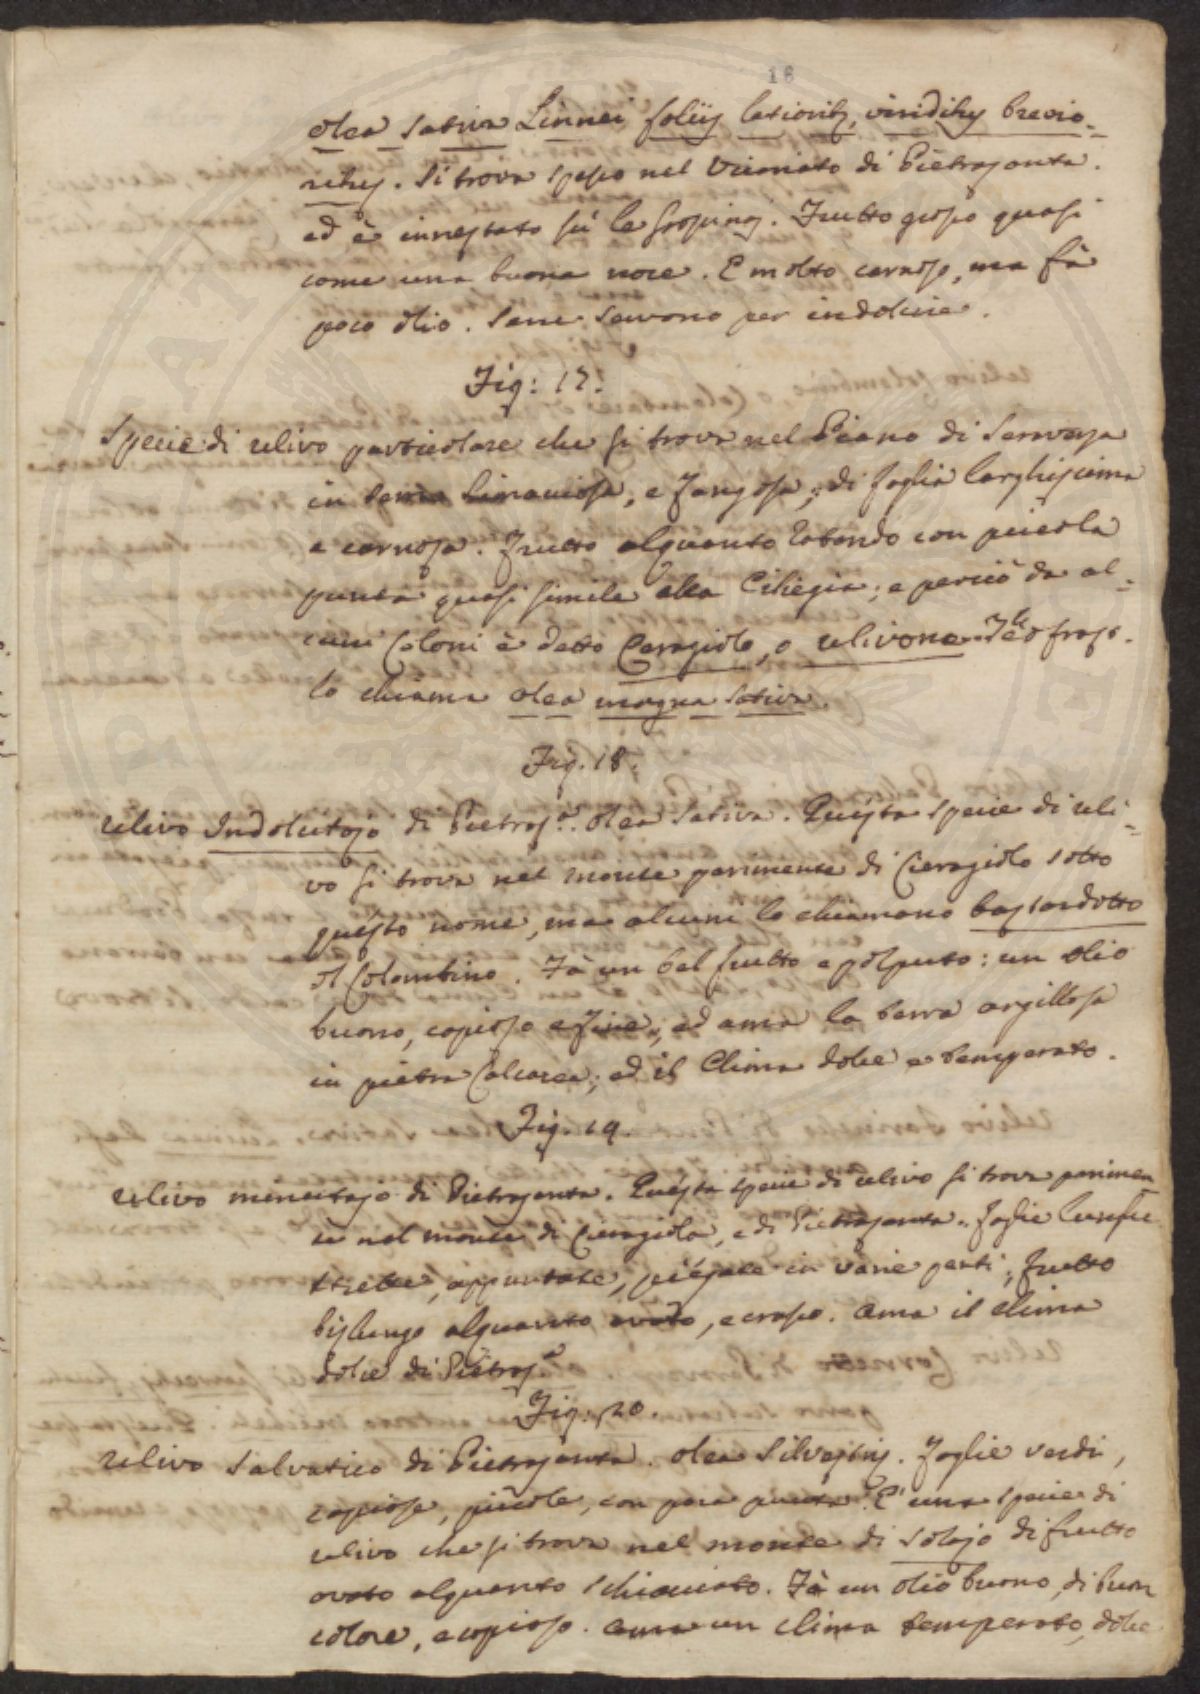 18
olea sativa Linnei folijs latioribs, viridibs brevio-
ribs. Si trova spesso nel Vicariato di Pietrasanta.
ed è innestato sù le Grossinaj. Frutto grosso quasi
come una buona noce. E molto carnoso, ma fà
poco olio. Sane servono per indolcire.
Fig: 17.
Specie di ulivo particolare che si trova nel Piano di Seravezza
in terra limacciosa, e fangosa; di foglia larghissima
e carnosa. Frutto alquanto rotondo con picciola
punta quasi simile alla Ciliegia; e perciò da al-
cuni Coloni è detto Ceragiolo, o ulivone. Teofrast.
lo chiama olea magna sativa.
Fig. 18.
Ulivo Indolcitojo di Pietras.a olea sativa. Questa specie di uli-
vo si trova nel monte parimente di Ceragiolo sotto
questo nome, ma alcuni lo chiamano bastardotto
ol Colombino. Fà un bel frutto e polputo: un olio
buono, copioso e fine; ed ama la terra argillosa
in pietra Calcarea; ed il Clima dolce e temperato.
Fig. 19.
Ulivo mincitajo di Pietrasanta. Questa specie di ulivo si trova parimen
te nel monte di Ceragiola, e di Pietrasanta. Foglie lunghe
strette, appuntate, piegate in varie parti; frutto
bislungo alquanto ovato, e crasso. Ama il clima
dolce di Pietras.a
Fig: 20.
Ulivo Salvatico di Pietrasanta. olea Silvestris. Foglie verdi,
copiose, picciole, con poca punta. E' una specie di
ulivo che si trova nel monte di Solajo di frutto
ovato alquanto schiacciato. Fà un olio buono, di buon
colore, e copioso. Ama un clima temperato, dolce